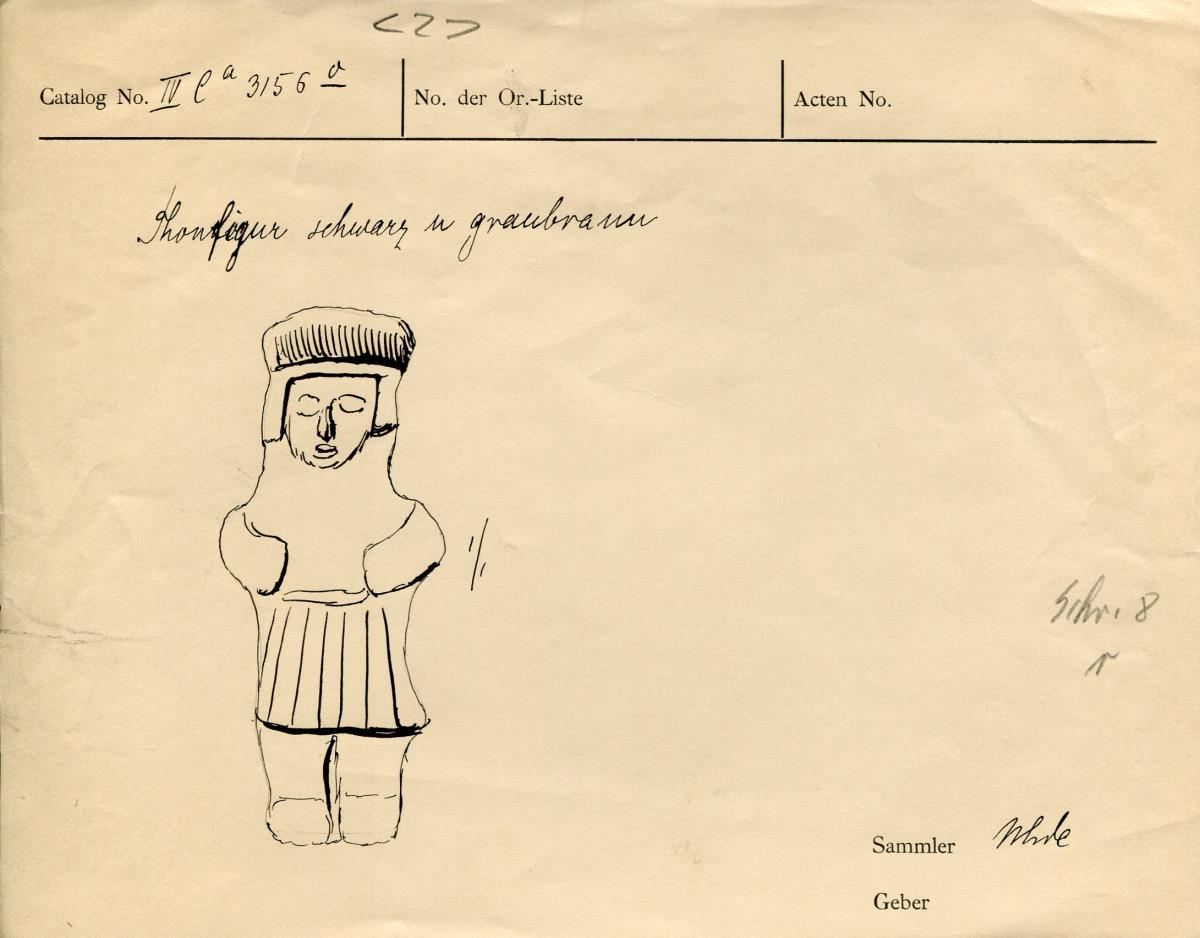 <2>
Catalog No. IV Ca 3156 a
No. der Or.-Liste
Acten No.
Thonfigur schwarz u graubraun
1/1
Schr. 8
r
Sammler Uhde
Geber